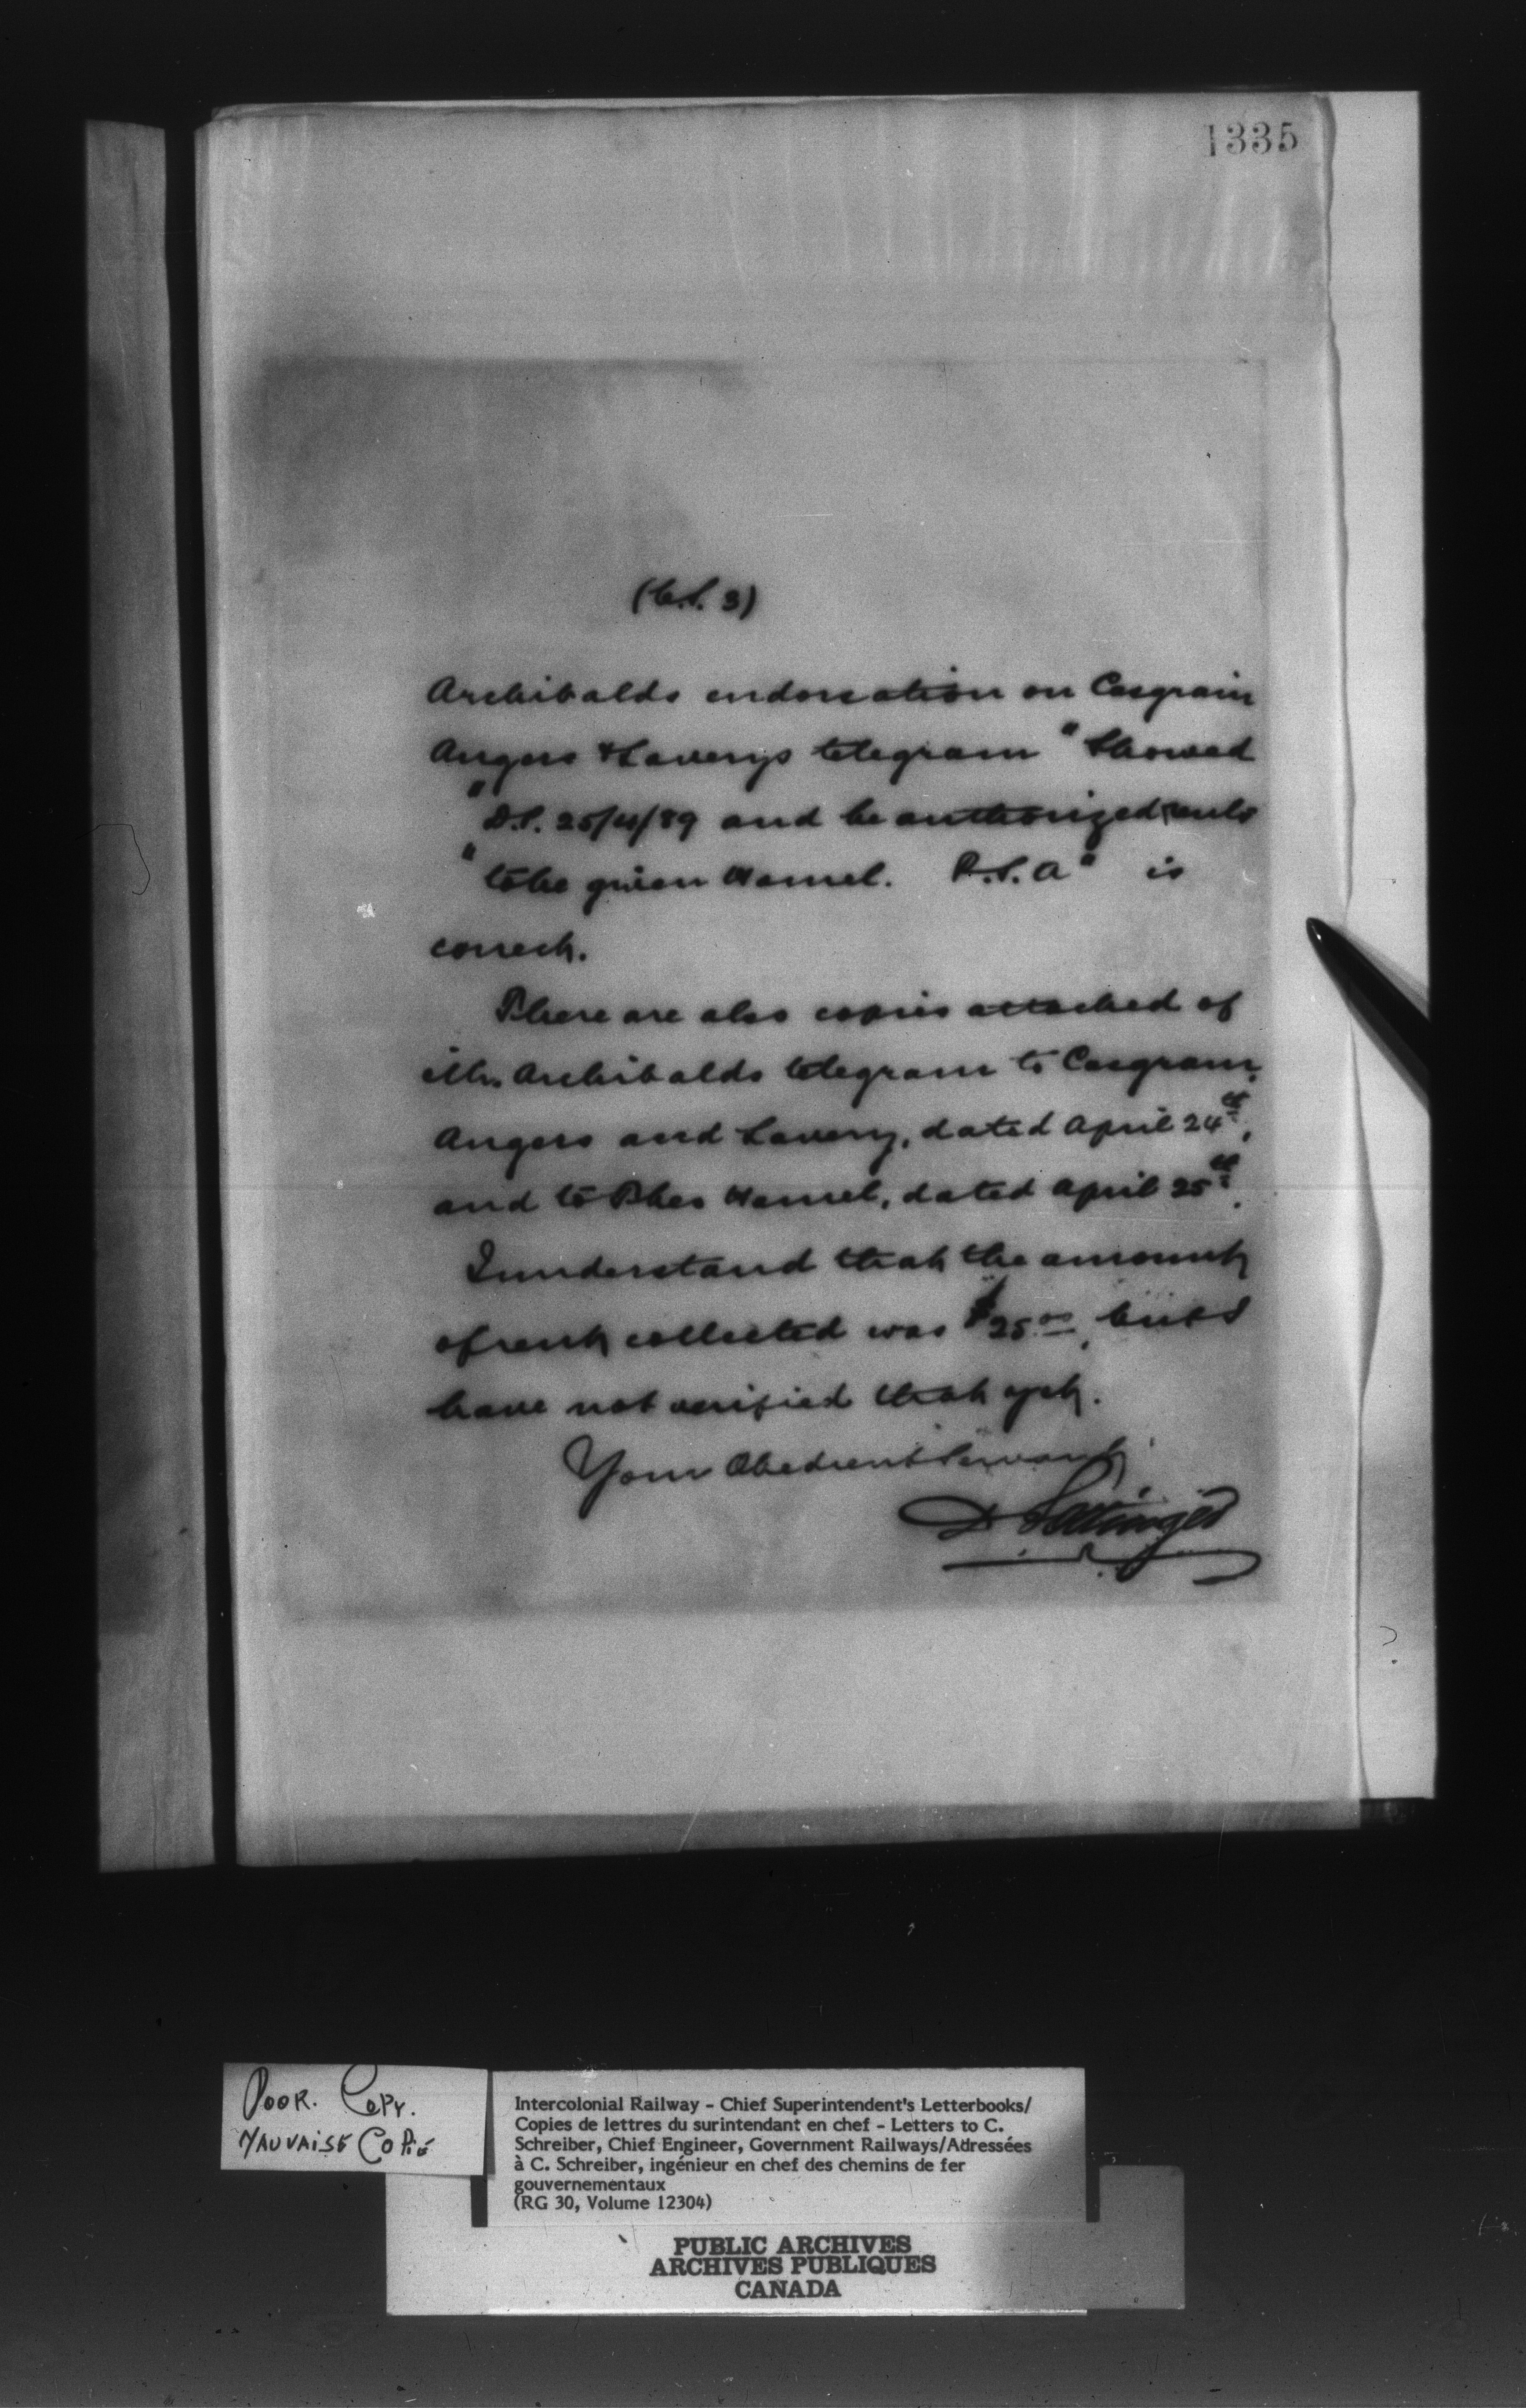 1335
(C.S. 3)
Archibalds endorsation on Casgrain
Angers & Laverys telegram "Showed
"D.P. 25/4/89 and he authorized
"to be given Hamel. P.S.A" is
correct.
There are also copies attached of
Mr. Archibalds telegram to Casgrain,
Angers and Lavery, dated April 24th,
and to Thos Hamel, dated April 25th.
I understand that the amount
of rent collected was $25.00, but I
have not verified that yet.
Your Obedient Servant
D Pottinger
POOR. COPY.
MAUVAISE COPIE
Intercolonial Railway - Chief Superintendent's Letterbooks/
Copies de lettres du surintendant en chef - Letters to C.
Schreiber, Chief Engineer, Government Railways/Adressées
à C. Schreiber, ingénieur en chef des chemins de fer
gouvernementaux
(RG 30, Volume 12304)
PUBLIC ARCHIVES
ARCHIVES PUBLIQUES
CANADA